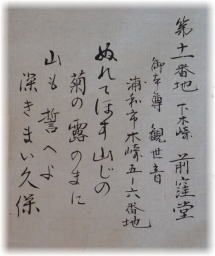 第十一番地 下木崎 前窪堂
御本尊 観世音
浦和市木崎五ー六番地
ぬれてほす山じの
菊の露のまに
山も誓へよ
深きまい久保